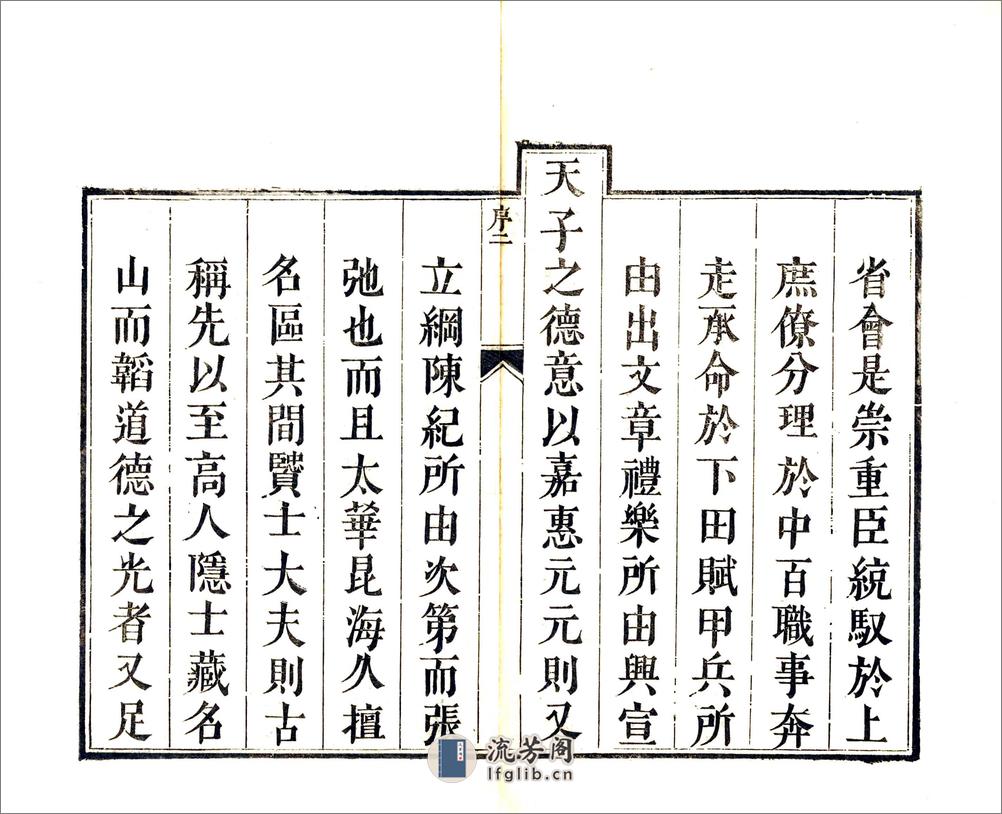 省會是崇重臣統馭於上
庶僚分理於中百職事奔
走承命於下田賦甲兵所
由出文章禮樂所由興宣
天子之德意以嘉惠元元則又
序二
立綱陳紀所由次第而張
弛也而且太華昆海久擅
名區其間賢士大夫則古
稱先以至高人隱士藏名
山而韜道德之光者又足
流芳阁
lfglib.cn